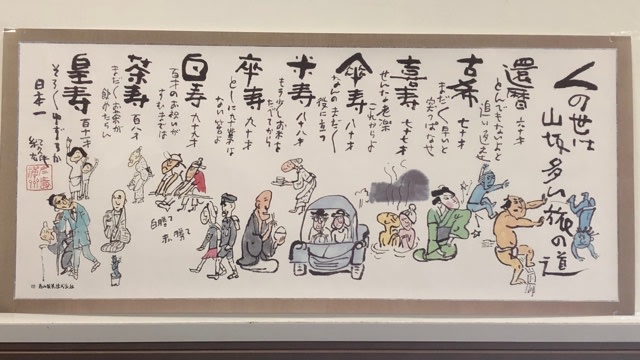 人の世は
山坂多い旅の道
還暦 六十才
とんでもないよと
追い返せ
古希 七十才
まだまだ早いと
つっぱなせ
喜寿 七十七才
せくな老楽
これからよ
傘寿 八十才
なんのまだまだ
役に立つ
米寿 八十八才
もう少しお米を
たべてから
卒寿 九十才
年に卒業は
ない筈よ
白寿 九十九才
百才のお祝いが
すむまでは
茶寿 百八才
まだまだお茶が
飲みたらん
皇寿 百十一才
そろそろゆずろうか
日本一
白勝て
赤勝て